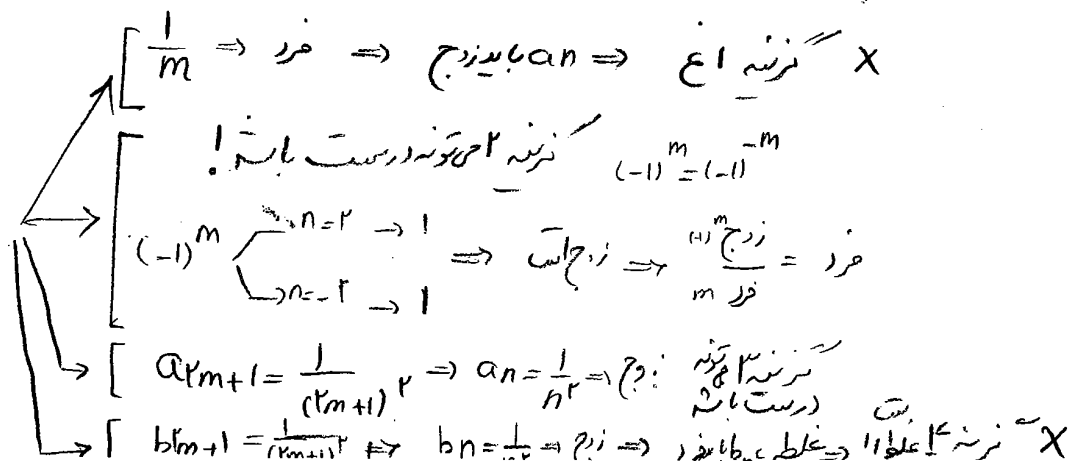 1/m ⇒ فرد ⇒ باید an زوج ⇒ گزینه ۱ غ X
گزینه ۲ می تونه درست باشه! (-1)^m = (-1)^-m
(-1)^m n=۲ → 1 n=-۲ → 1 ⇒ زوج است ⇒ (-1)^m زوج / m فرد = فرد
a۲m+1 = 1/(۲m+1)^۲ ⇒ an = 1/n^۲ ⇒ زوج: گزینه ۳ می تونه درست باشه
b۲m+1 = 1/(۲m+1)^۲ ⇒ bn = 1/n^۲ ⇒ زوج ⇒ غلط گزینه ۴ X